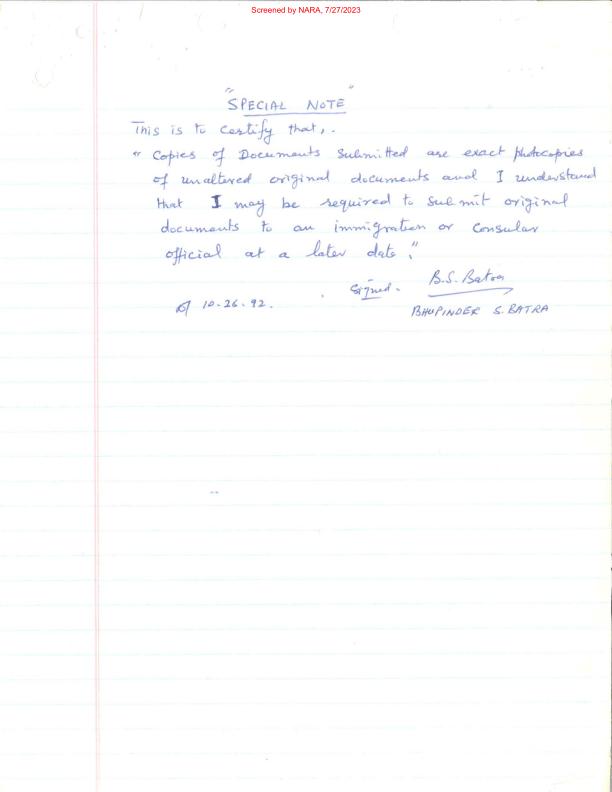 Screened by NARA, 7/27/2023
" SPECIAL NOTE "
This is to certify that,.
" Copies of Documents submitted are exact photocopies
of unaltered original documents and I understand
that I may be required to submit original
documents to an immigration or consular
official at a later date."
Signed. B.S. Batra
10-26-92.
BHUPINDER S. BATRA